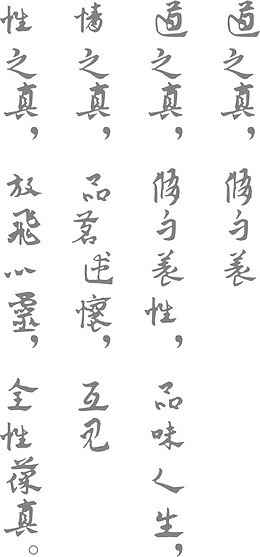 道之真，修身養
道之真，修身養性，品味人生，
情之真，品茗述懷，互見
性之真，放飛心靈，全性葆真。